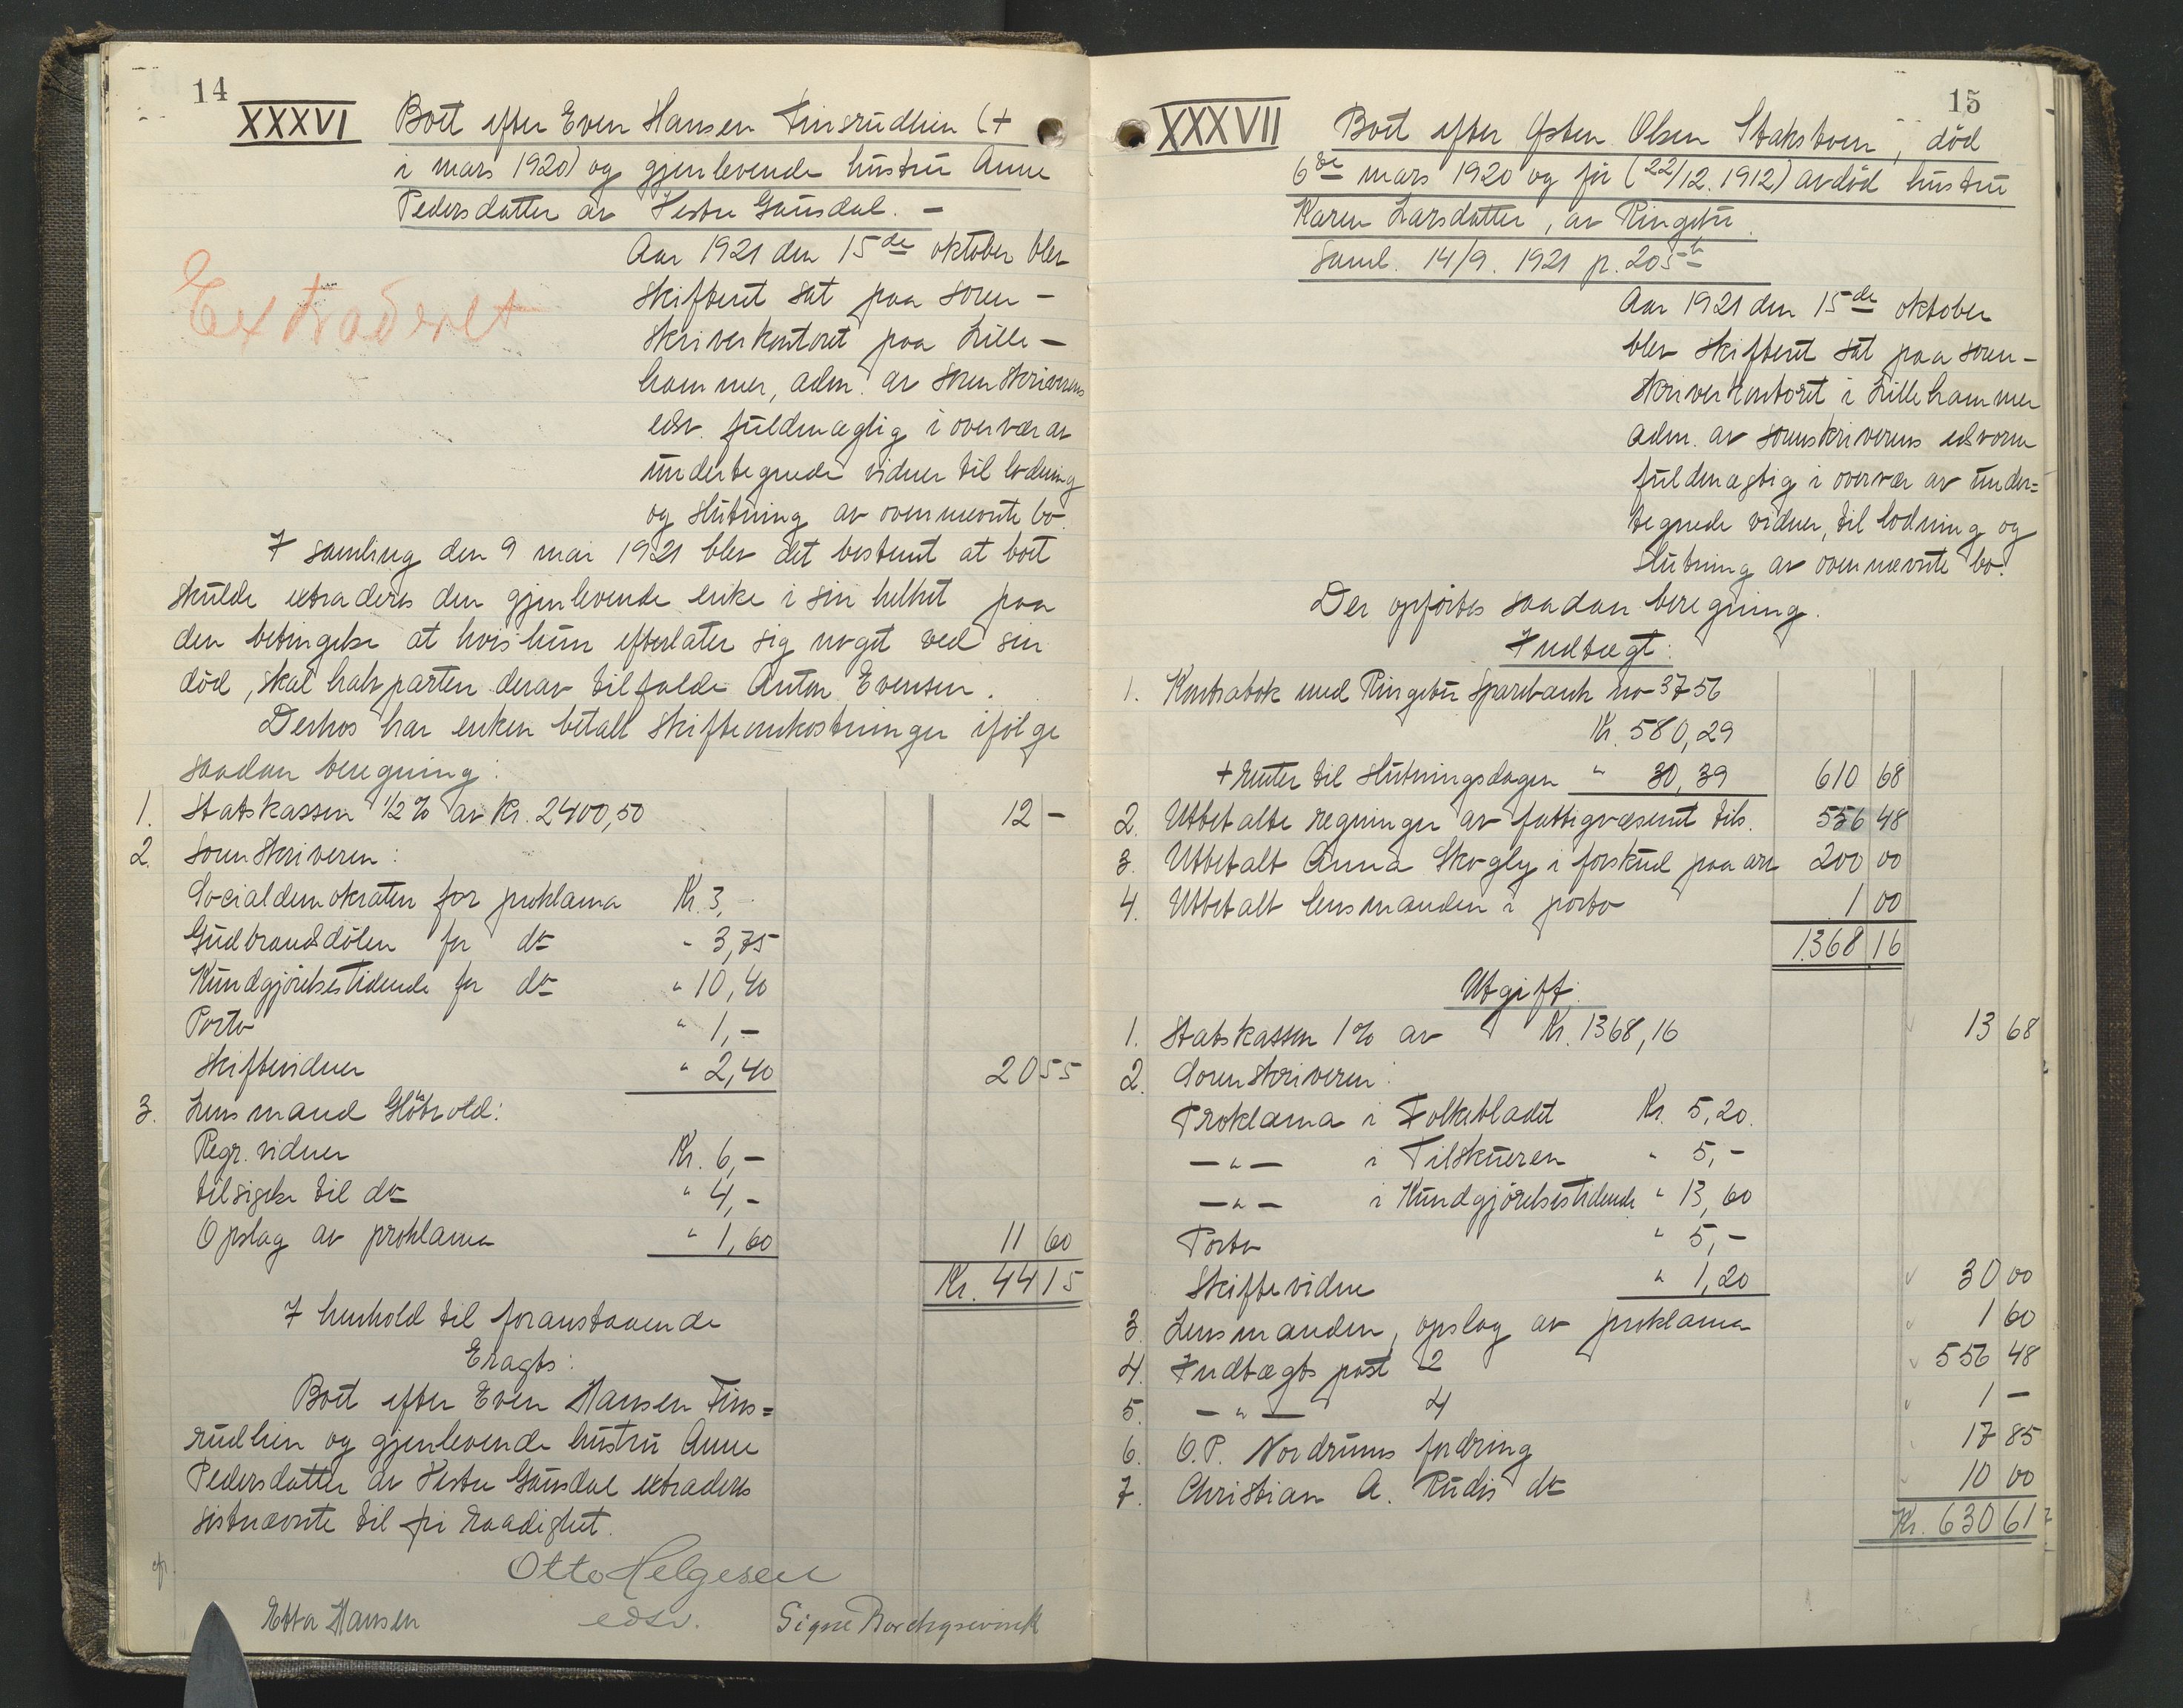 14
XXXVI Boet efter Even Hansen Finsrudlien (+
i mars 1920) og gjenlevende hustru Anne
Pedersdatter av Vestre Gausdal. –
Extraderet
Aar 1921 den 15de oktober blev
skifteret sat paa soren-
skriverkontoret paa Lille-
hammer, adm. av sorenskriverens
edsv. fuldmægtig i overvær av
undertegnede vidner til lodning
og slutning av ovennævnte bo.
I samling den 9 mai 1921 blev det bestemt at boet
skulde extraderes den gjenlevende enke i sin helhet paa
den betingelse at hvis hun efterlater sig noget ved sin
død, skal halvparten derav tilfalde Anton Evensen.
Derhos har enken betalt skifteomkostninger ifølge
saadan beregning:
1. Statskassen 1/2 % av kr. 2400,50 12 –
2. Sorenskriveren:
Socialdemokraten for proklama Kr. 3,–
Gudbrandsdølen for do " 3,75
Kundgjørelsestidende for do " 10,40
Porto " 1,–
Skiftevidner " 2,40 20 55
3. Lensmand Glørvold:
Regr. vidner Kr. 6,–
tilsigelse til do " 4,–
Opslag av proklama " 1,60 11 60
Kr. 44 15
I henhold til foranstaaende
Eragtes:
Boet efter Even Hansen Fins=
rudlien og gjenlevende hustru Anne
Pedersdatter av Vestre Gausdal extraderes
sistnævnte til fri raadighet.
Otto Helgesen
edsv.
Etta Hansen Signe Borchgrevink
15
XXXVII Boet efter Østen Olsen Stakstoen, død
6te mars 1920 og før (22/12. 1912) avdød hustru
Karen Larsdatter, av Ringebu.
Saml. 14/9. 1921 p. 205b
Aar 1921 den 15de oktober
blev skifteret sat paa soren-
skriverkontoret i Lillehammer
adm. av sorenskriverens edsvorne
fuldmægtig i overvær av under=
tegnede vidner, til lodning og
slutning av ovennævnte bo.
Der opførtes saadan beregning.
Indtægt:
1. Kontrabok med Ringebu Sparebank no 3756
Kr. 580,29
+ renter til slutningsdagen " 30,39 610 68
2. Utbetalte regninger av fattigvæsenet tils. 556 48
3. Utbetalt Anna Skogly i forskud paa arv 200 00
4. Utbetalt lensmanden i porto 1 00
1368 16
Utgift:
1. Statskassen 1% av Kr. 1368,16 13 68
2. Sorenskriveren:
Proklama i Folkebladet Kr. 5,20.
– " – i Tilskueren " 5,–
– " – i Kundgjørelsestidende " 13,60
Porto " 5,–
Skiftevidne " 1,20 30 00
3. Lensmanden, opslag av proklama 1 60
4. Indtægts post 2 556 48
5. – " – 4 1 –
6. O.P. Nordrums fordring 17 85
7. Christian A. Rudis do 10 00
Kr. 630 61